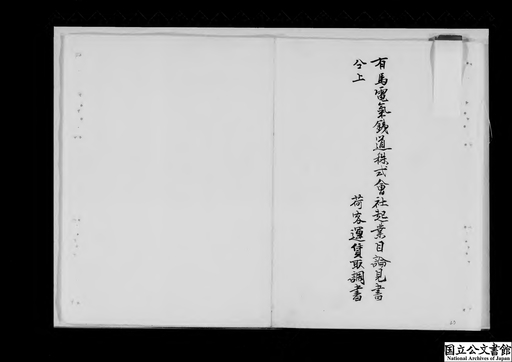 有馬電氣鐵道株式會社起業目論見書
仝上
荷客運賃取調書
国立公文書館
National Archives of Japan